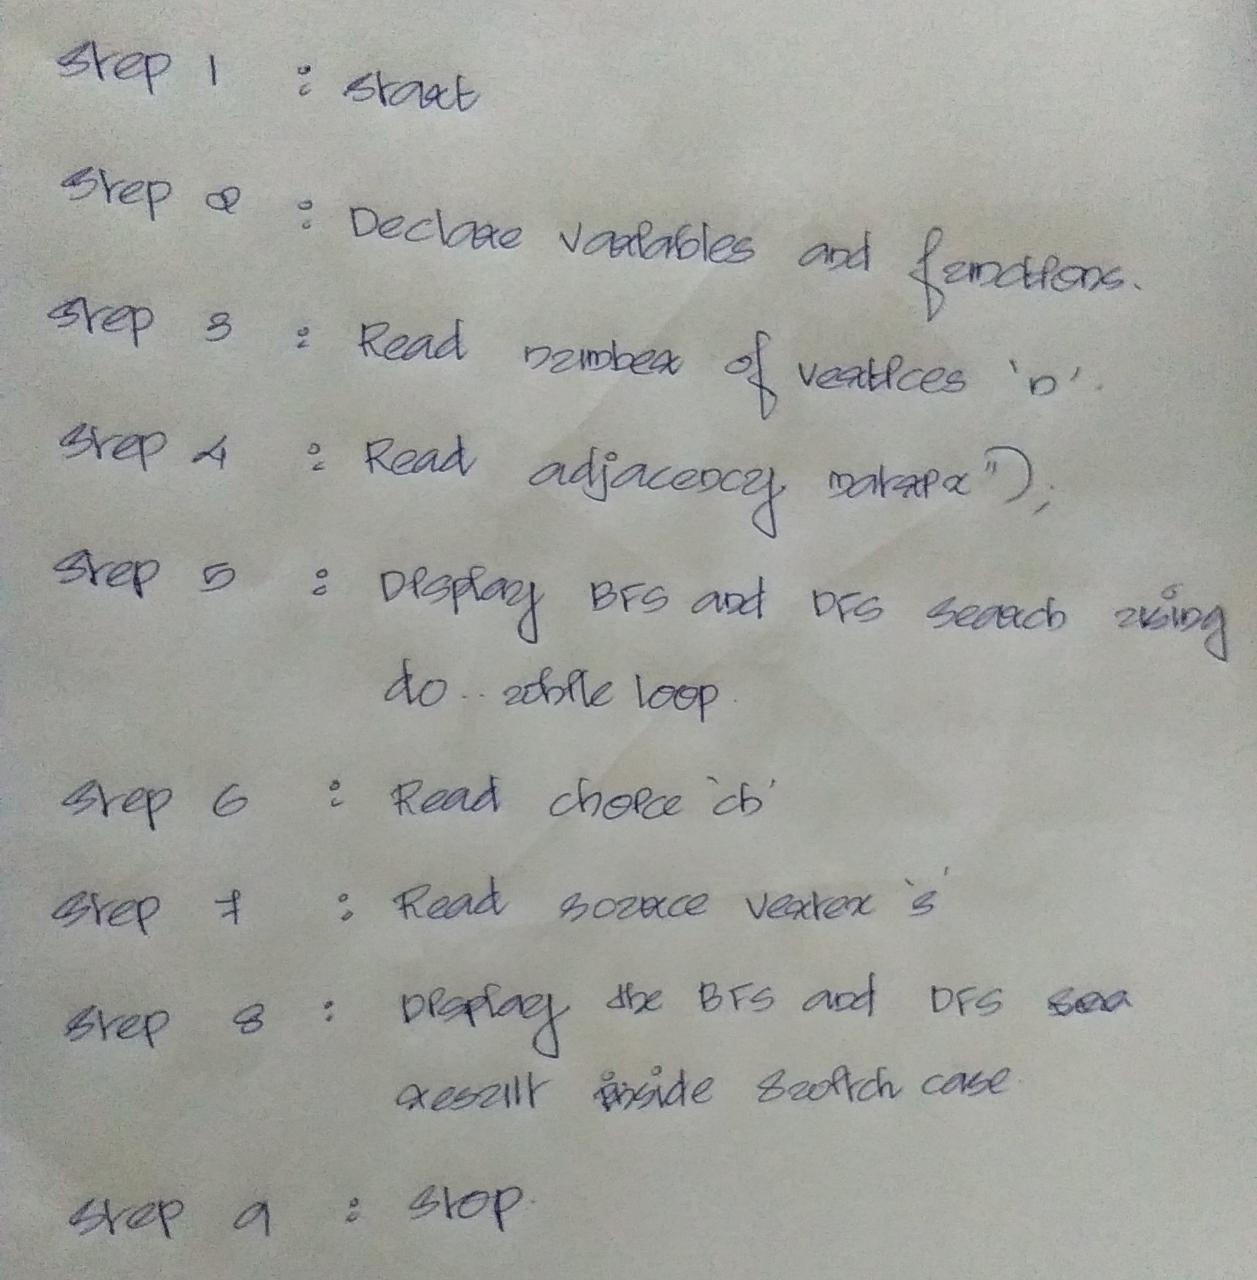 Step 1 : Start
Step 2 : Declare variables and functions.
Step 3 : Read number of vertices 'n'.
Step 4 : Read adjacency matrix");
Step 5 : Display BFS and DFS search using
do.. while loop.
Step 6 : Read choice 'ch'
Step 7 : Read source vertex 's'
Step 8 : Display the BFS and DFS
result inside switch case.
Step 9 : Stop.